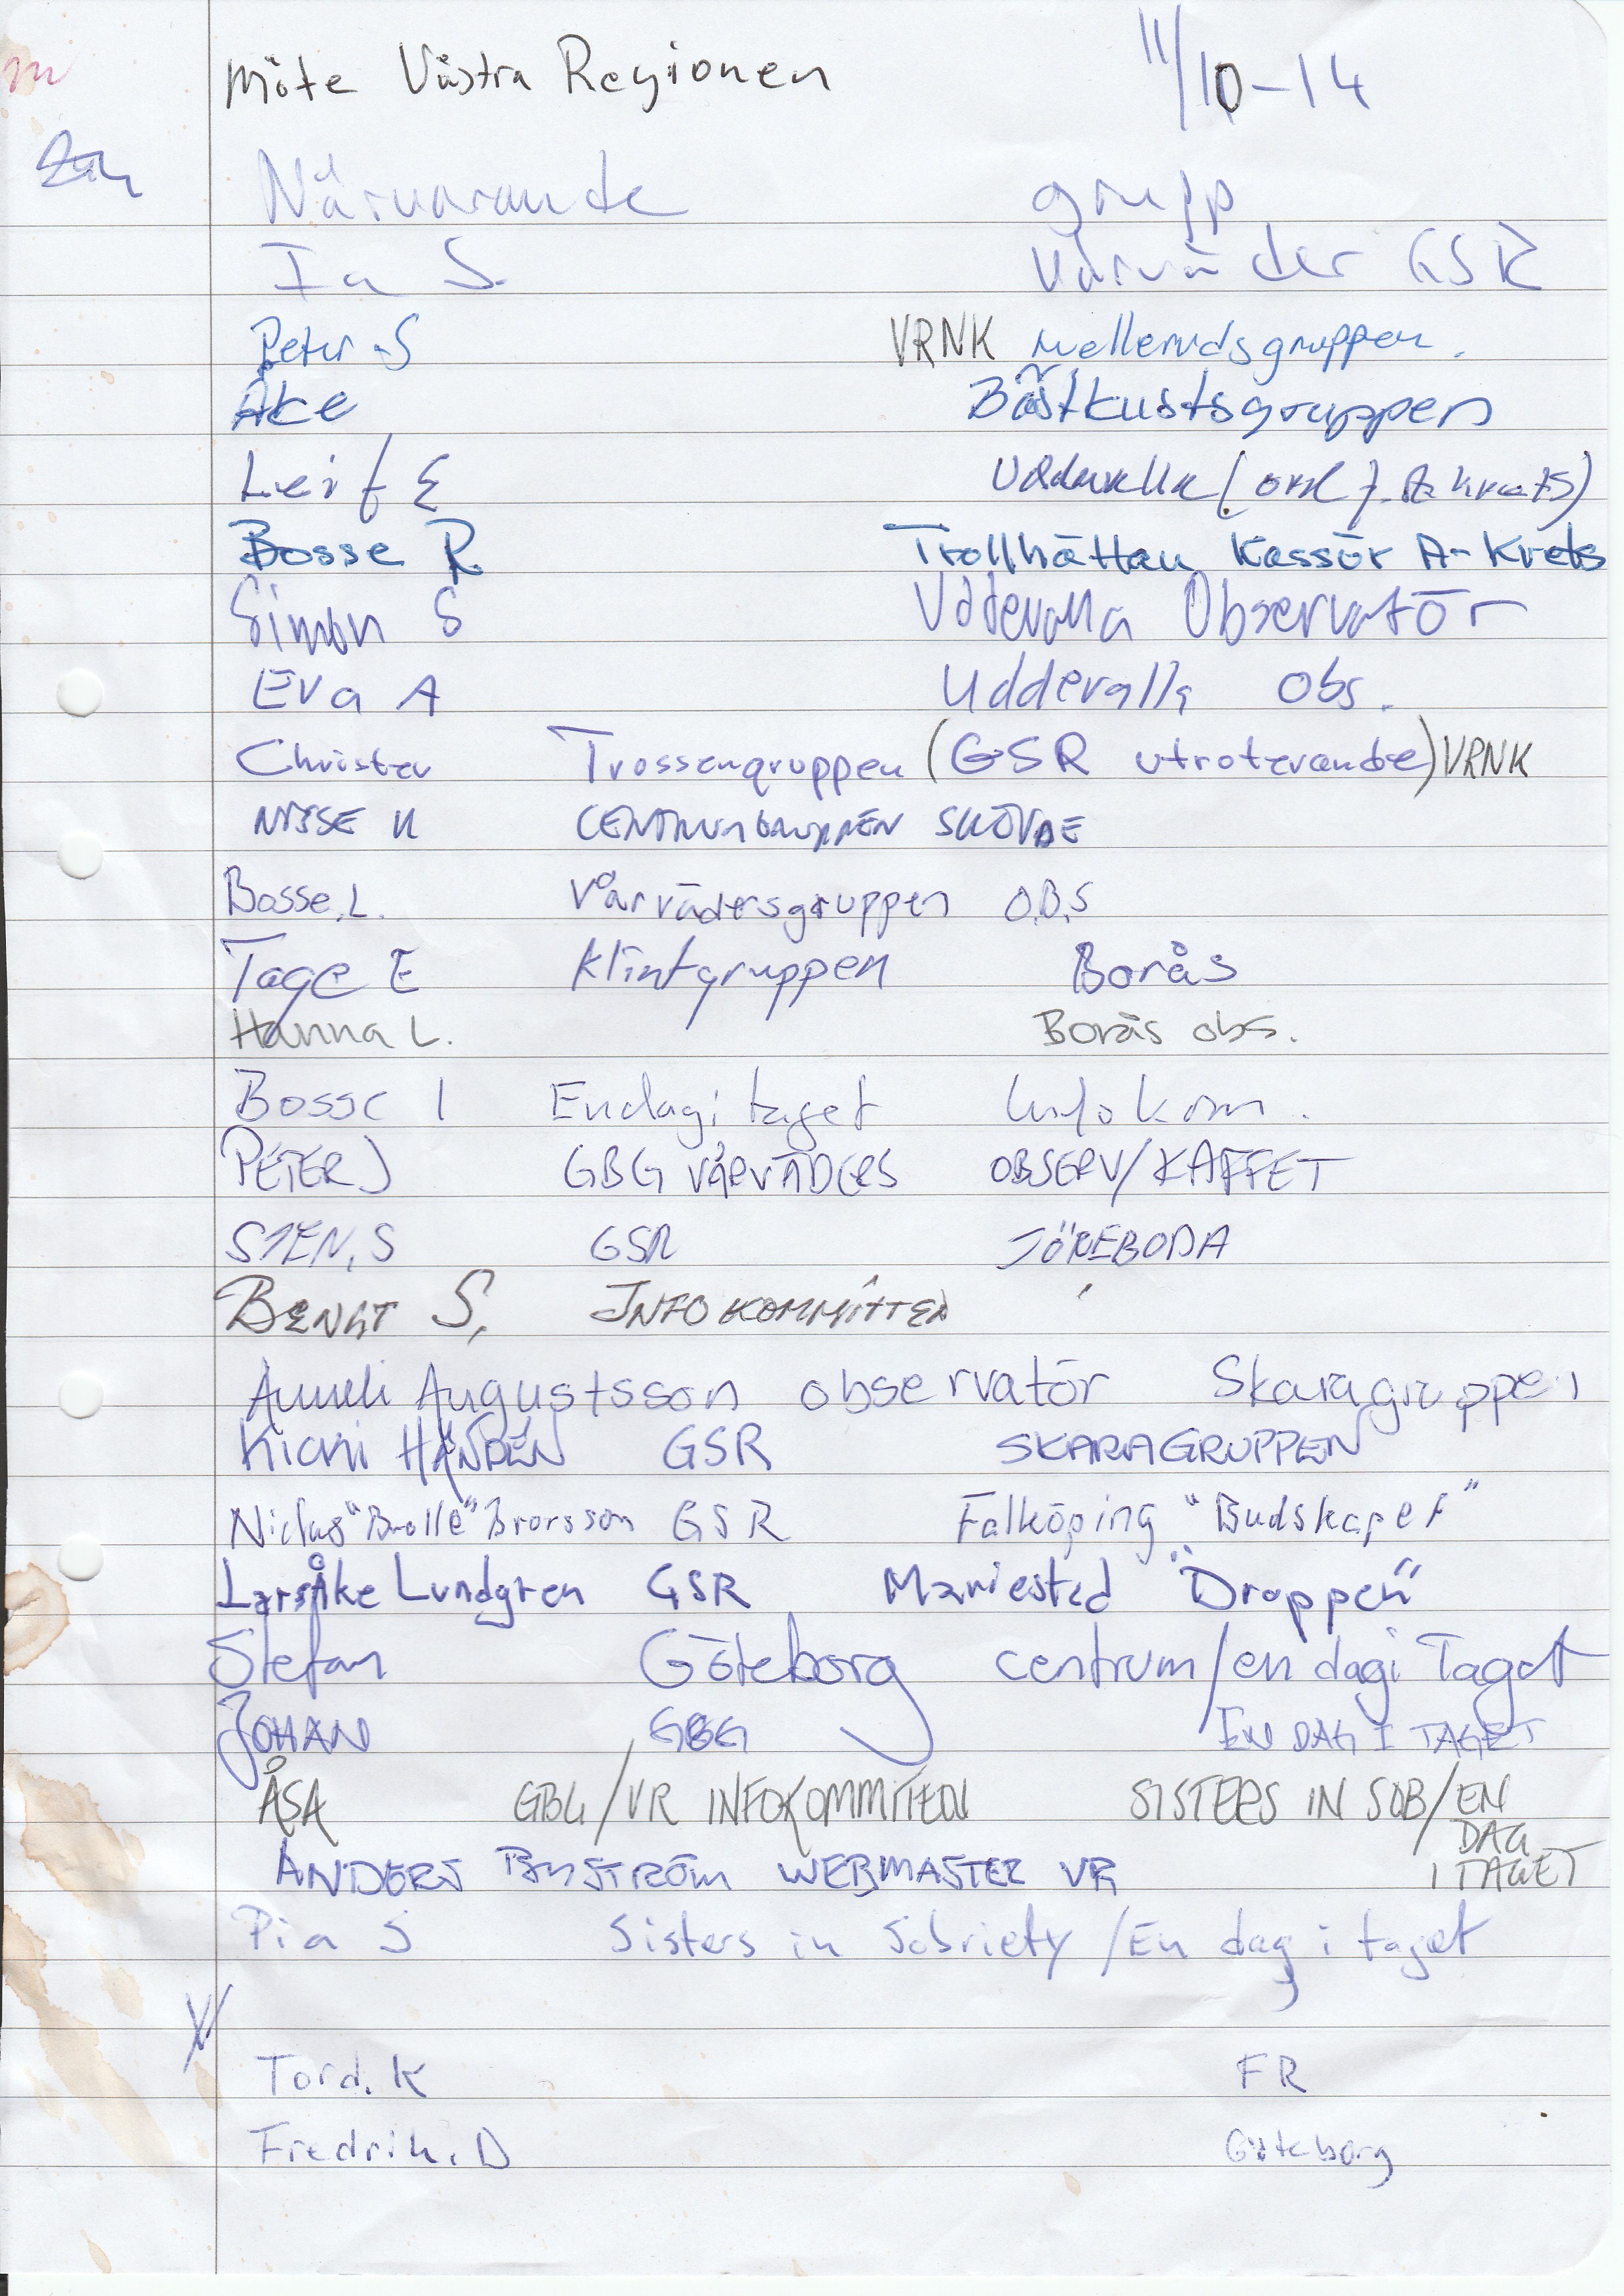 Möte Västra Regionen 11/10-14
Närvarande grupp
Ia S. Vårväder GSR
Peter S VRNK Mellerudsgruppen.
Åke Bästkustsgruppen
Leif E Uddevalla (ord f. A krets)
Bosse R Trollhättan Kassör A-Krets
Simon S Uddevalla Observatör
Eva A Uddevalla Obs.
Christer Trossengruppen (GSR utroterande) VRNK
NISSE K CENTRUMGRUPPEN SKÖVDE
Bosse.L. Vårvädersgruppen O.B.S
Tage E Klintgruppen Borås
Hanna L. Borås obs.
Bosse I En dag i taget Info kom.
PETER J GBG VÅRVÄDERS OBSERV/KAFFET
STEN.S GSR TÖREBODA
BENGT S, INFO KOMMITTEN
Anneli Augustsson observatör Skaragruppen
Kicki HÄNDÉN GSR SKARAGRUPPEN
Niclas "Brolle" Brorsson GSR Falköping "Budskapet"
LarsÅke Lundgren GSR Mariestad "Droppen"
Stefan Göteborg centrum/en dag i Taget
JOHAN GBG EN DAG I TAGET
ÅSA GBG/VR INFOKOMMITTEN SISTERS IN SOB/EN
DAG
I TAGET
ANDERS BYSTRÖM WEBMASTER VR
Pia S Sisters in Sobriety /En dag i taget
Tord. K FR
Fredrik. D Göteborg